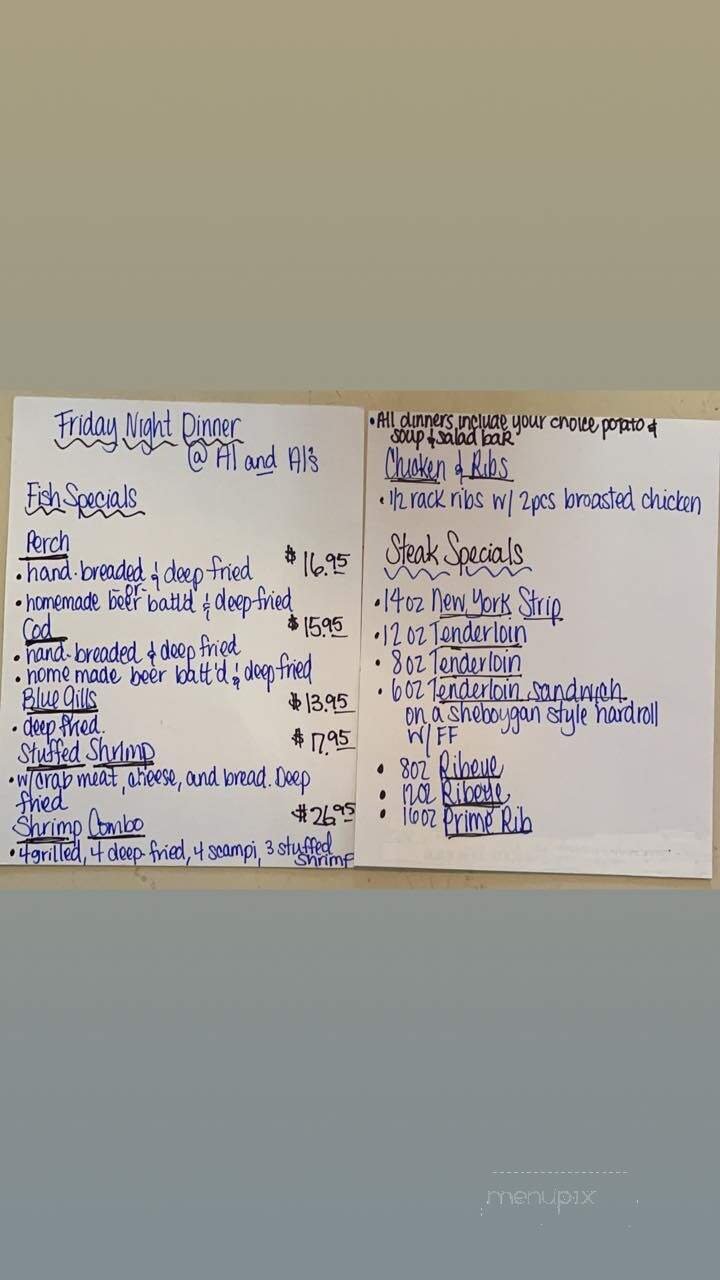 Friday Night Dinner
@ Al and Al's
Fish Specials
Perch
$16.95
• hand-breaded & deep fried
-or-
• homemade beer batt'd & deep-fried
Cod
$15.95
• hand-breaded & deep fried
• home made beer batt'd & deep fried
Blue Gills
$13.95
• deep fried.
Stuffed Shrimp
$17.95
• w/crab meat, cheese, and bread. Deep
fried
Shrimp Combo
$26.95
• 4 grilled, 4 deep-fried, 4 scampi, 3 stuffed
Shrimp
• All dinners include your choice potato &
soup & salad bar
Chicken & Ribs
• 1/2 rack ribs w/ 2pcs broasted chicken
Steak Specials
• 14oz New York Strip
• 12 oz Tenderloin
• 8oz Tenderloin
• 6oz Tenderloin sandwich
on a sheboygan style hardroll
w/ FF
• 8oz Ribeye
• 12oz Ribeye
• 16oz Prime Rib
menupix